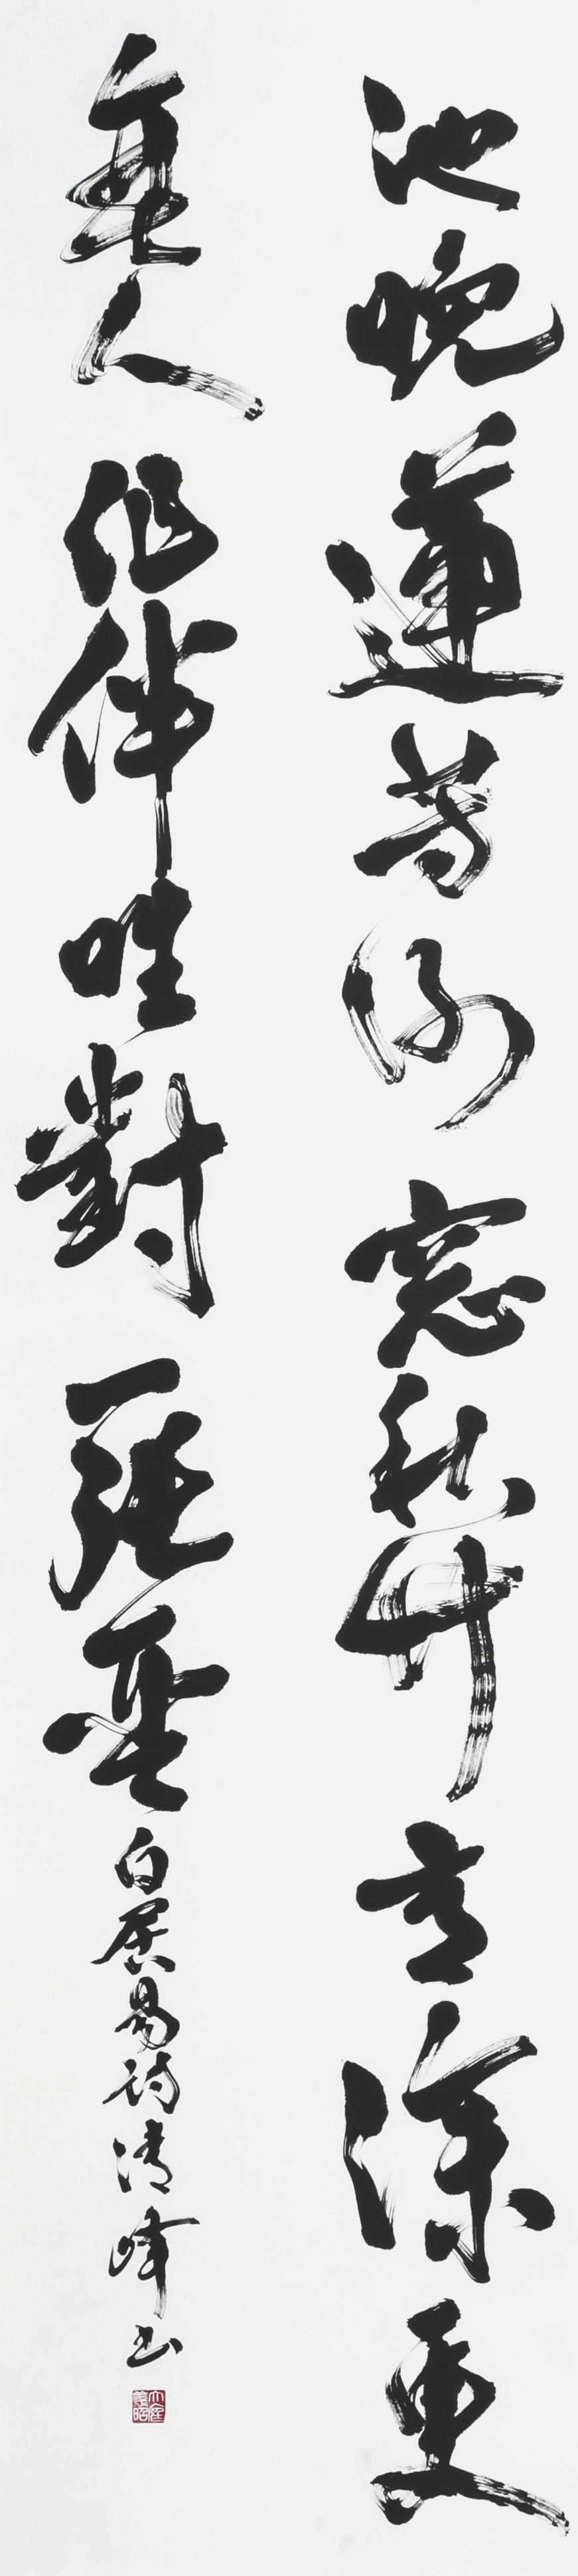 池晩蓮芳謝窓秋竹意深更
無人作伴唯對一張琴
白居易詩清峰書